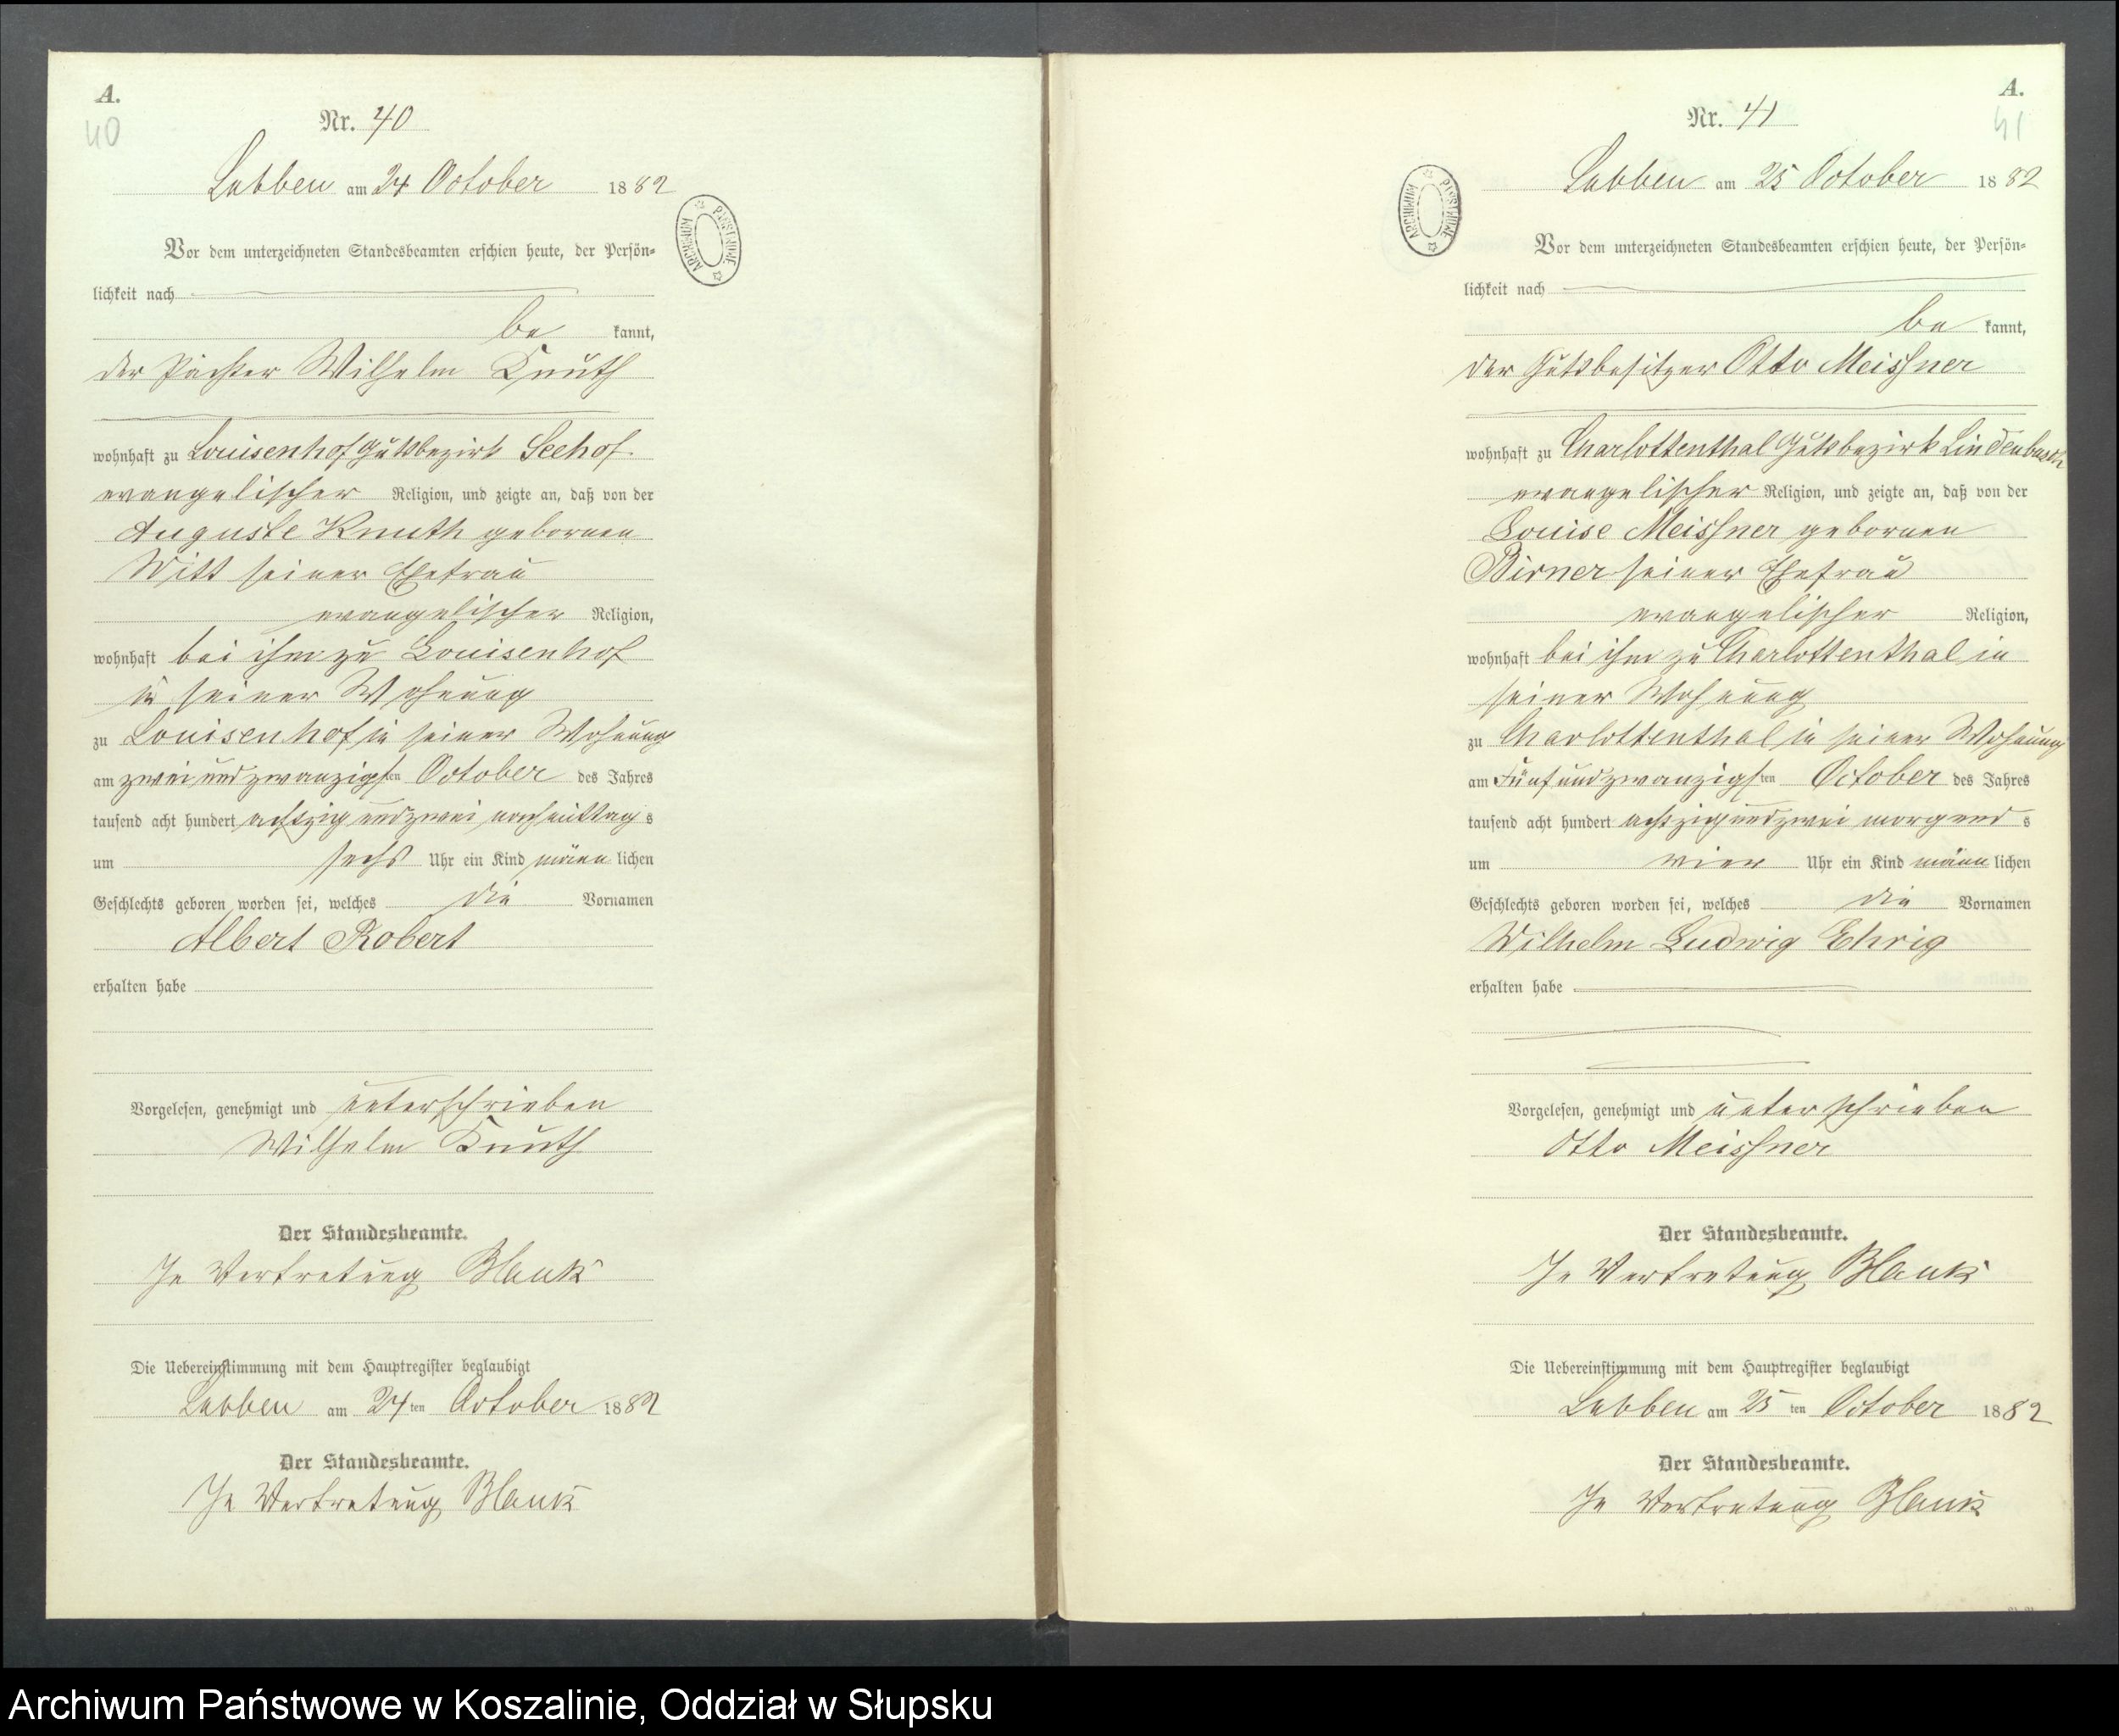 A.
40
Nr. 40
Labben am 24 October 1882
ARCHIWUM PAŃSTWOWE
Vor dem unterzeichneten Standesbeamten erschien heute, der Persön=
lichkeit nach
be kannt,
der Pächter Wilhelm Knuth
wohnhaft zu Louisenhof Gutsbezirk Seehof
evangelischer Religion, und zeigte an, daß von der
Auguste Knuth gebornen
Witt seiner Ehefrau
evangelischer Religion,
wohnhaft bei ihm zu Louisenhof
in seiner Wohnung
zu Louisenhof in seiner Wohnung
am zwei und zwanzigsten October des Jahres
tausend acht hundert achtzig und zwei nachmittags
um sechs Uhr ein Kind männlichen
Geschlechts geboren worden sei, welches die Vornamen
Albert Robert
erhalten habe
Vorgelesen, genehmigt und unterschrieben
Wilhelm Knuth
Der Standesbeamte.
In Vertretung Blank
Die Uebereinstimmung mit dem Hauptregister beglaubigt
Labben am 24 ten October 1882
Der Standesbeamte.
In Vertretung Blank
A.
41
Nr. 41
Labben am 25 October 1882
ARCHIWUM PAŃSTWOWE
Vor dem unterzeichneten Standesbeamten erschien heute, der Persön=
lichkeit nach
be kannt,
der Gutsbesitzer Otto Meissner
wohnhaft zu Charlottenthal Gutsbezirk Lindenbusch
evangelischer Religion, und zeigte an, daß von der
Louise Meissner gebornen
Birner seiner Ehefrau
evangelischer Religion,
wohnhaft bei ihm zu Charlottenthal in
seiner Wohnung
zu Charlottenthal in seiner Wohnung
am Fünf und zwanzigsten October des Jahres
tausend acht hundert achtzig und zwei morgends
um vier Uhr ein Kind männlichen
Geschlechts geboren worden sei, welches die Vornamen
Wilhelm Ludwig Ehrig
erhalten habe
Vorgelesen, genehmigt und unterschrieben
Otto Meissner
Der Standesbeamte.
In Vertretung Blank
Die Uebereinstimmung mit dem Hauptregister beglaubigt
Labben am 25 ten October 1882
Der Standesbeamte.
In Vertretung Blank
Archiwum Państwowe w Koszalinie, Oddział w Słupsku